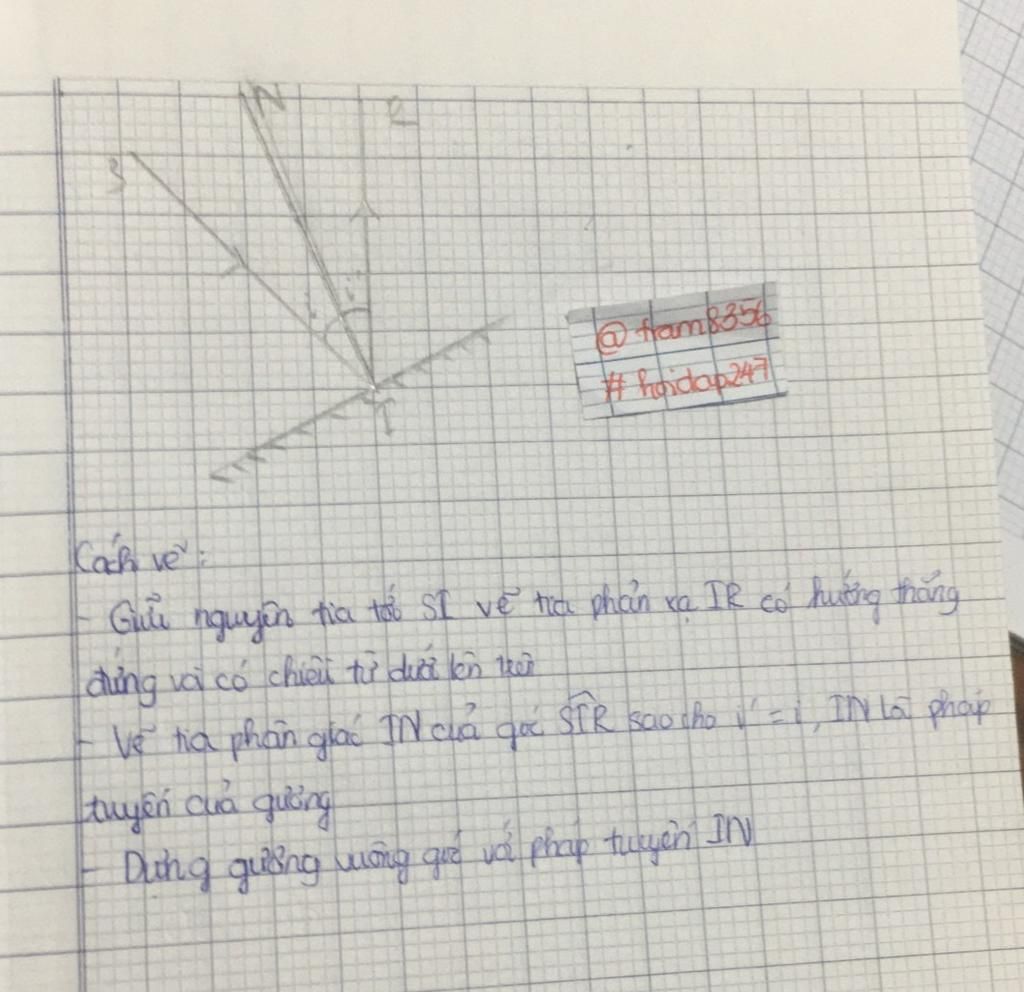 N
R
S
i'
i
I
@ tram8356
# hoidap247
Cách vẽ:
- Giữ nguyên tia tới SI vẽ tia phản xạ IR có hướng thẳng
đứng và có chiều từ dưới lên trên
- Vẽ tia phân giác IN của góc SIR sao cho i' = i, IN là pháp
tuyến của gương
- Dựng gương vuông góc với pháp tuyến IN